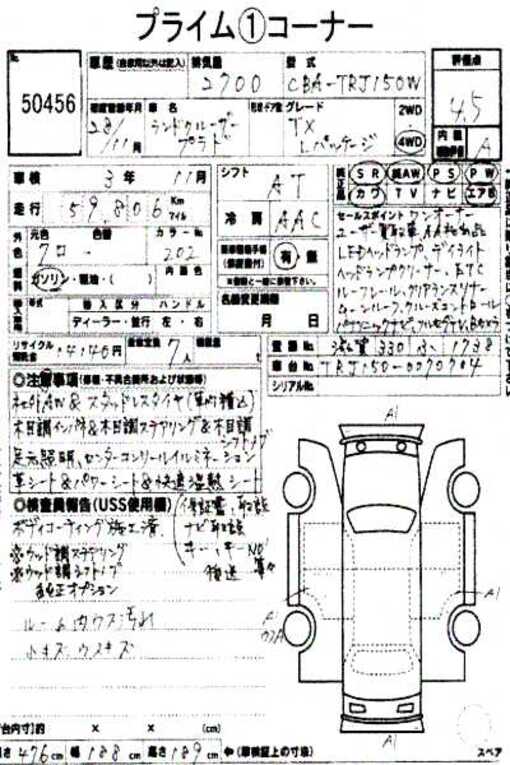 プライム①コーナー
No.
50456
車歴(自家用以外は記入) 排気量 型式
2700 CBA-TRJ150W
評価点
4.5
初度登録年月 車名 グレード
28/11月 ランドクルーザープラド TX Lパッケージ
2WD
4WD
内装 A
車検 3年 11月
シフト AT
SR AW PS PW
カワ TV ナビ エアB
走行 59,806 Km マイル
冷房 AAC
セールスポイント ワンオーナー
ユーザー買取車
LEDヘッドランプ デイライト
ヘッドランプクリーナー、ETC
ルーフレール、クリアランスソナー
ムーンルーフ、クルーズコントロール
パナソニックナビ、フルセグTV、Bカメラ
外色 元色 色替 カラーNo.
クロ 202
燃料 ガソリン・軽油・( ) 内装色
有・無
名義変更期限
月 日
輸入車 年式 輸入区分 ハンドル
ディーラー・並行 左・右
リサイクル預託金 14140円 乗車定員 7人
登録No. 330 1738
車台No. TRJ150-0070704
シリアルNo.
◎注意事項(修復・不具合箇所および状態等)
社外AW&スタッドレスタイヤ(車内積込)
木目調インパネ&木目調ステアリング&木目調シフトノブ
足元照明、センターコンソールイルミネーション
革シート&パワーシート&快適温熱シート
◎検査員報告(USS使用欄)
ボディコーティング施工済
(保証書、取説
ナビ取説
キー、キーNo
後送
※ウッド調ステアリング
※ウッド調シフトノブ
純正オプション
ルーム内ウス汚れ
小キズ ウスキズ
A1
A1
A1
A1
(台内寸)約 × × (cm)
長さ 476cm 幅 188cm 高さ 189cm ←(車検証上の寸法)
スペア